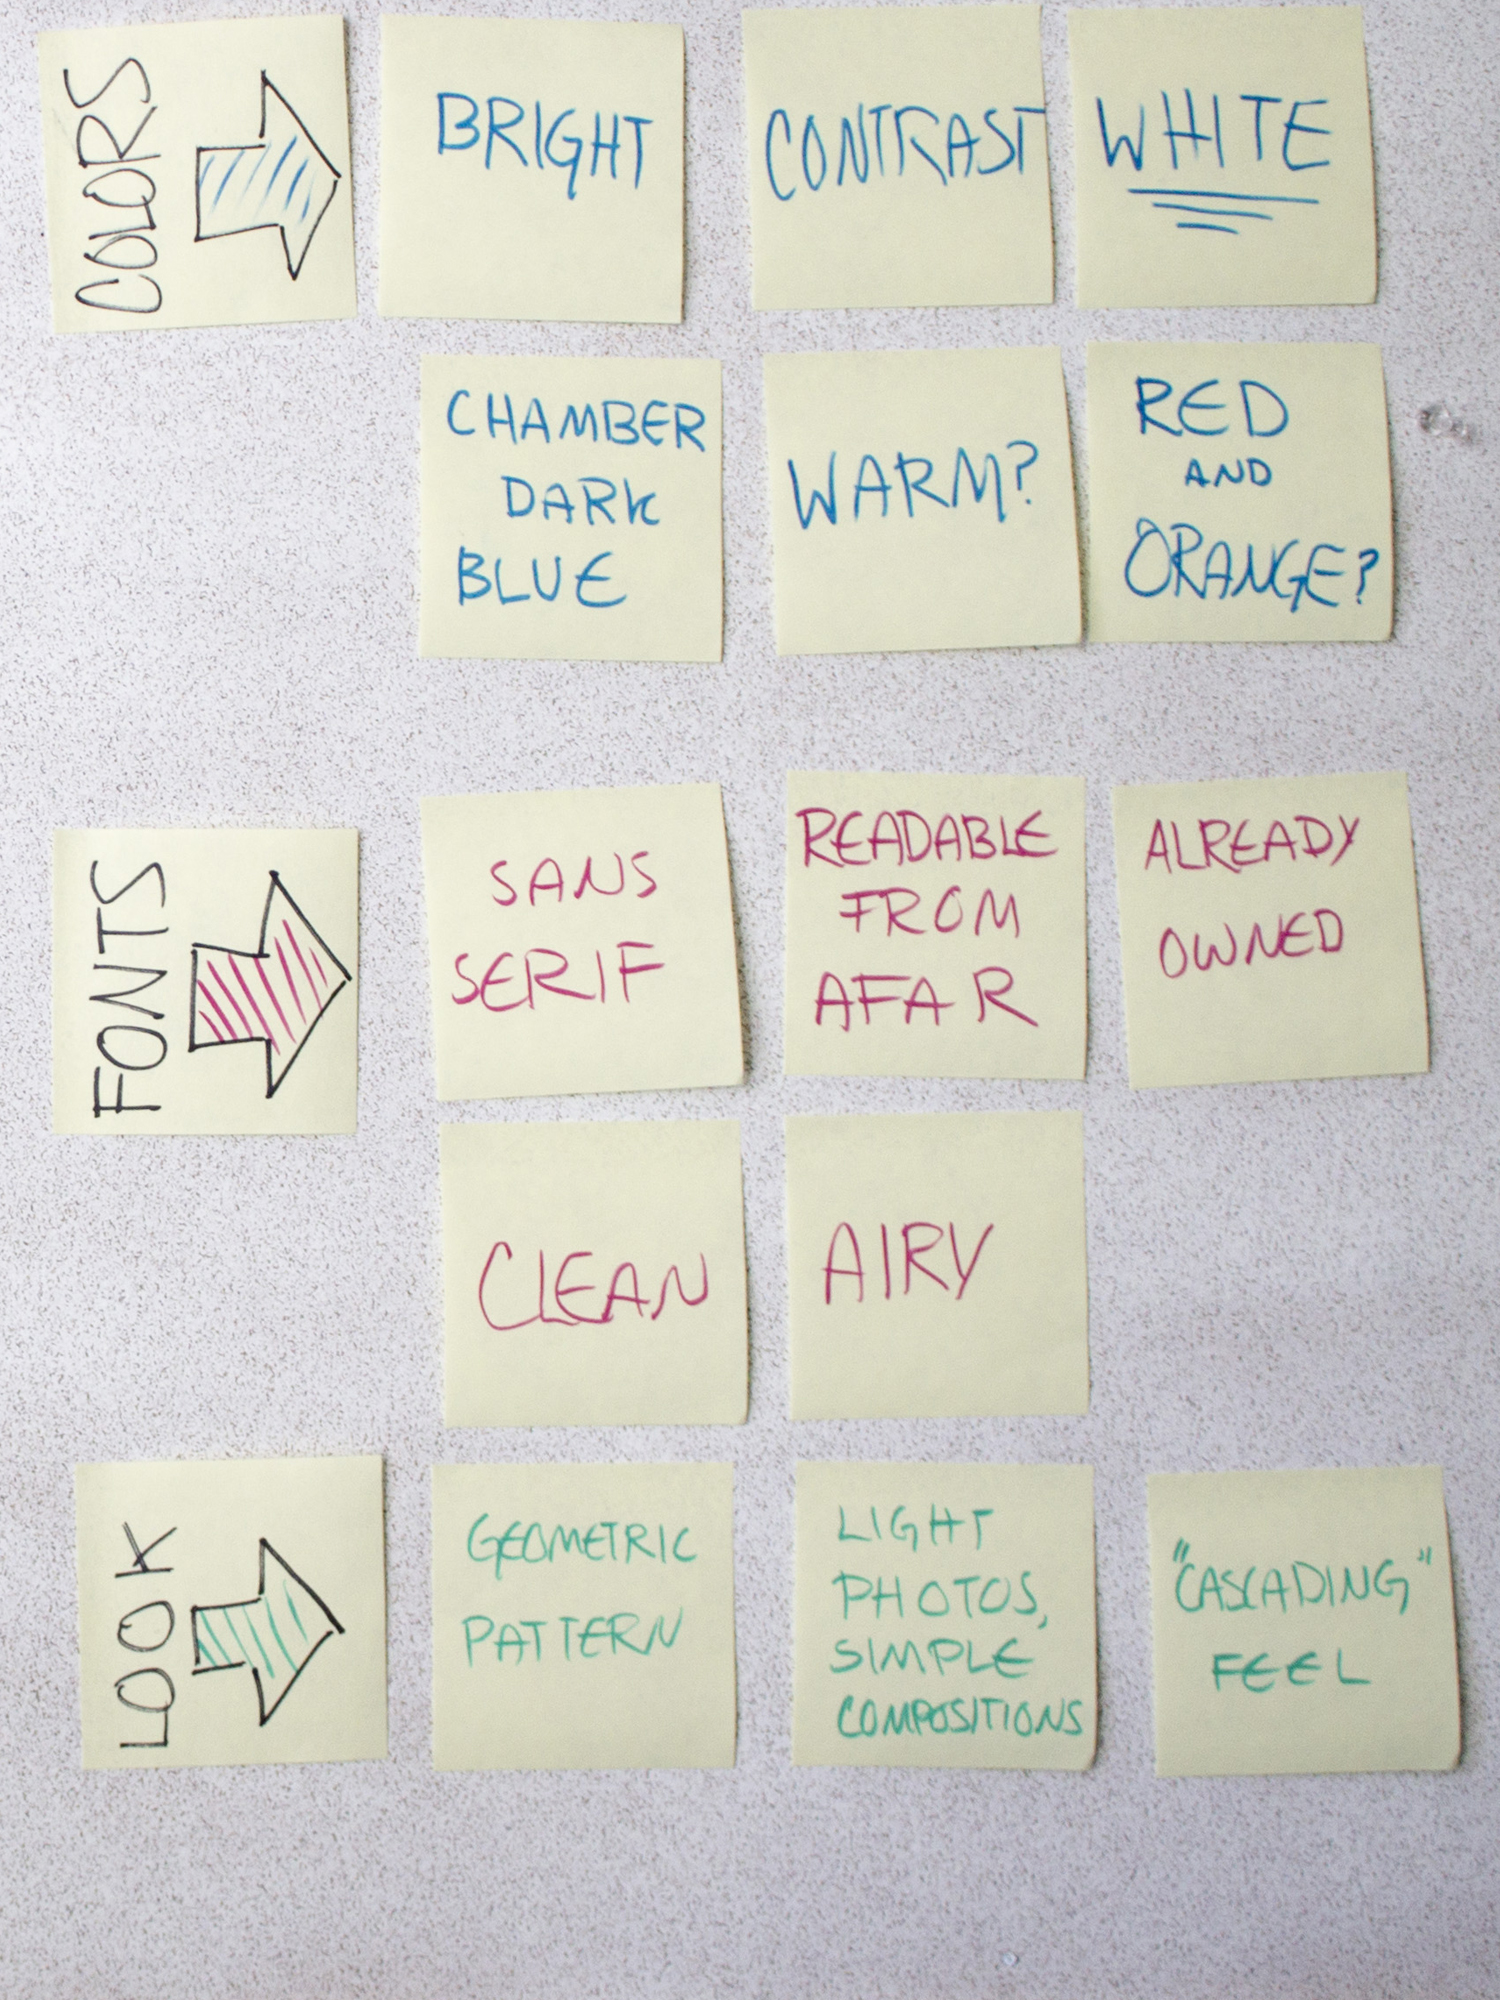 COLORS
BRIGHT
CONTRAST
WHITE
CHAMBER
DARK
BLUE
WARM?
RED
AND
ORANGE?
FONTS
SANS
SERIF
READABLE
FROM
AFAR
ALREADY
OWNED
CLEAN
AIRY
LOOK
GEOMETRIC
PATTERN
LIGHT
PHOTOS,
SIMPLE
COMPOSITIONS
"CASCADING"
FEEL